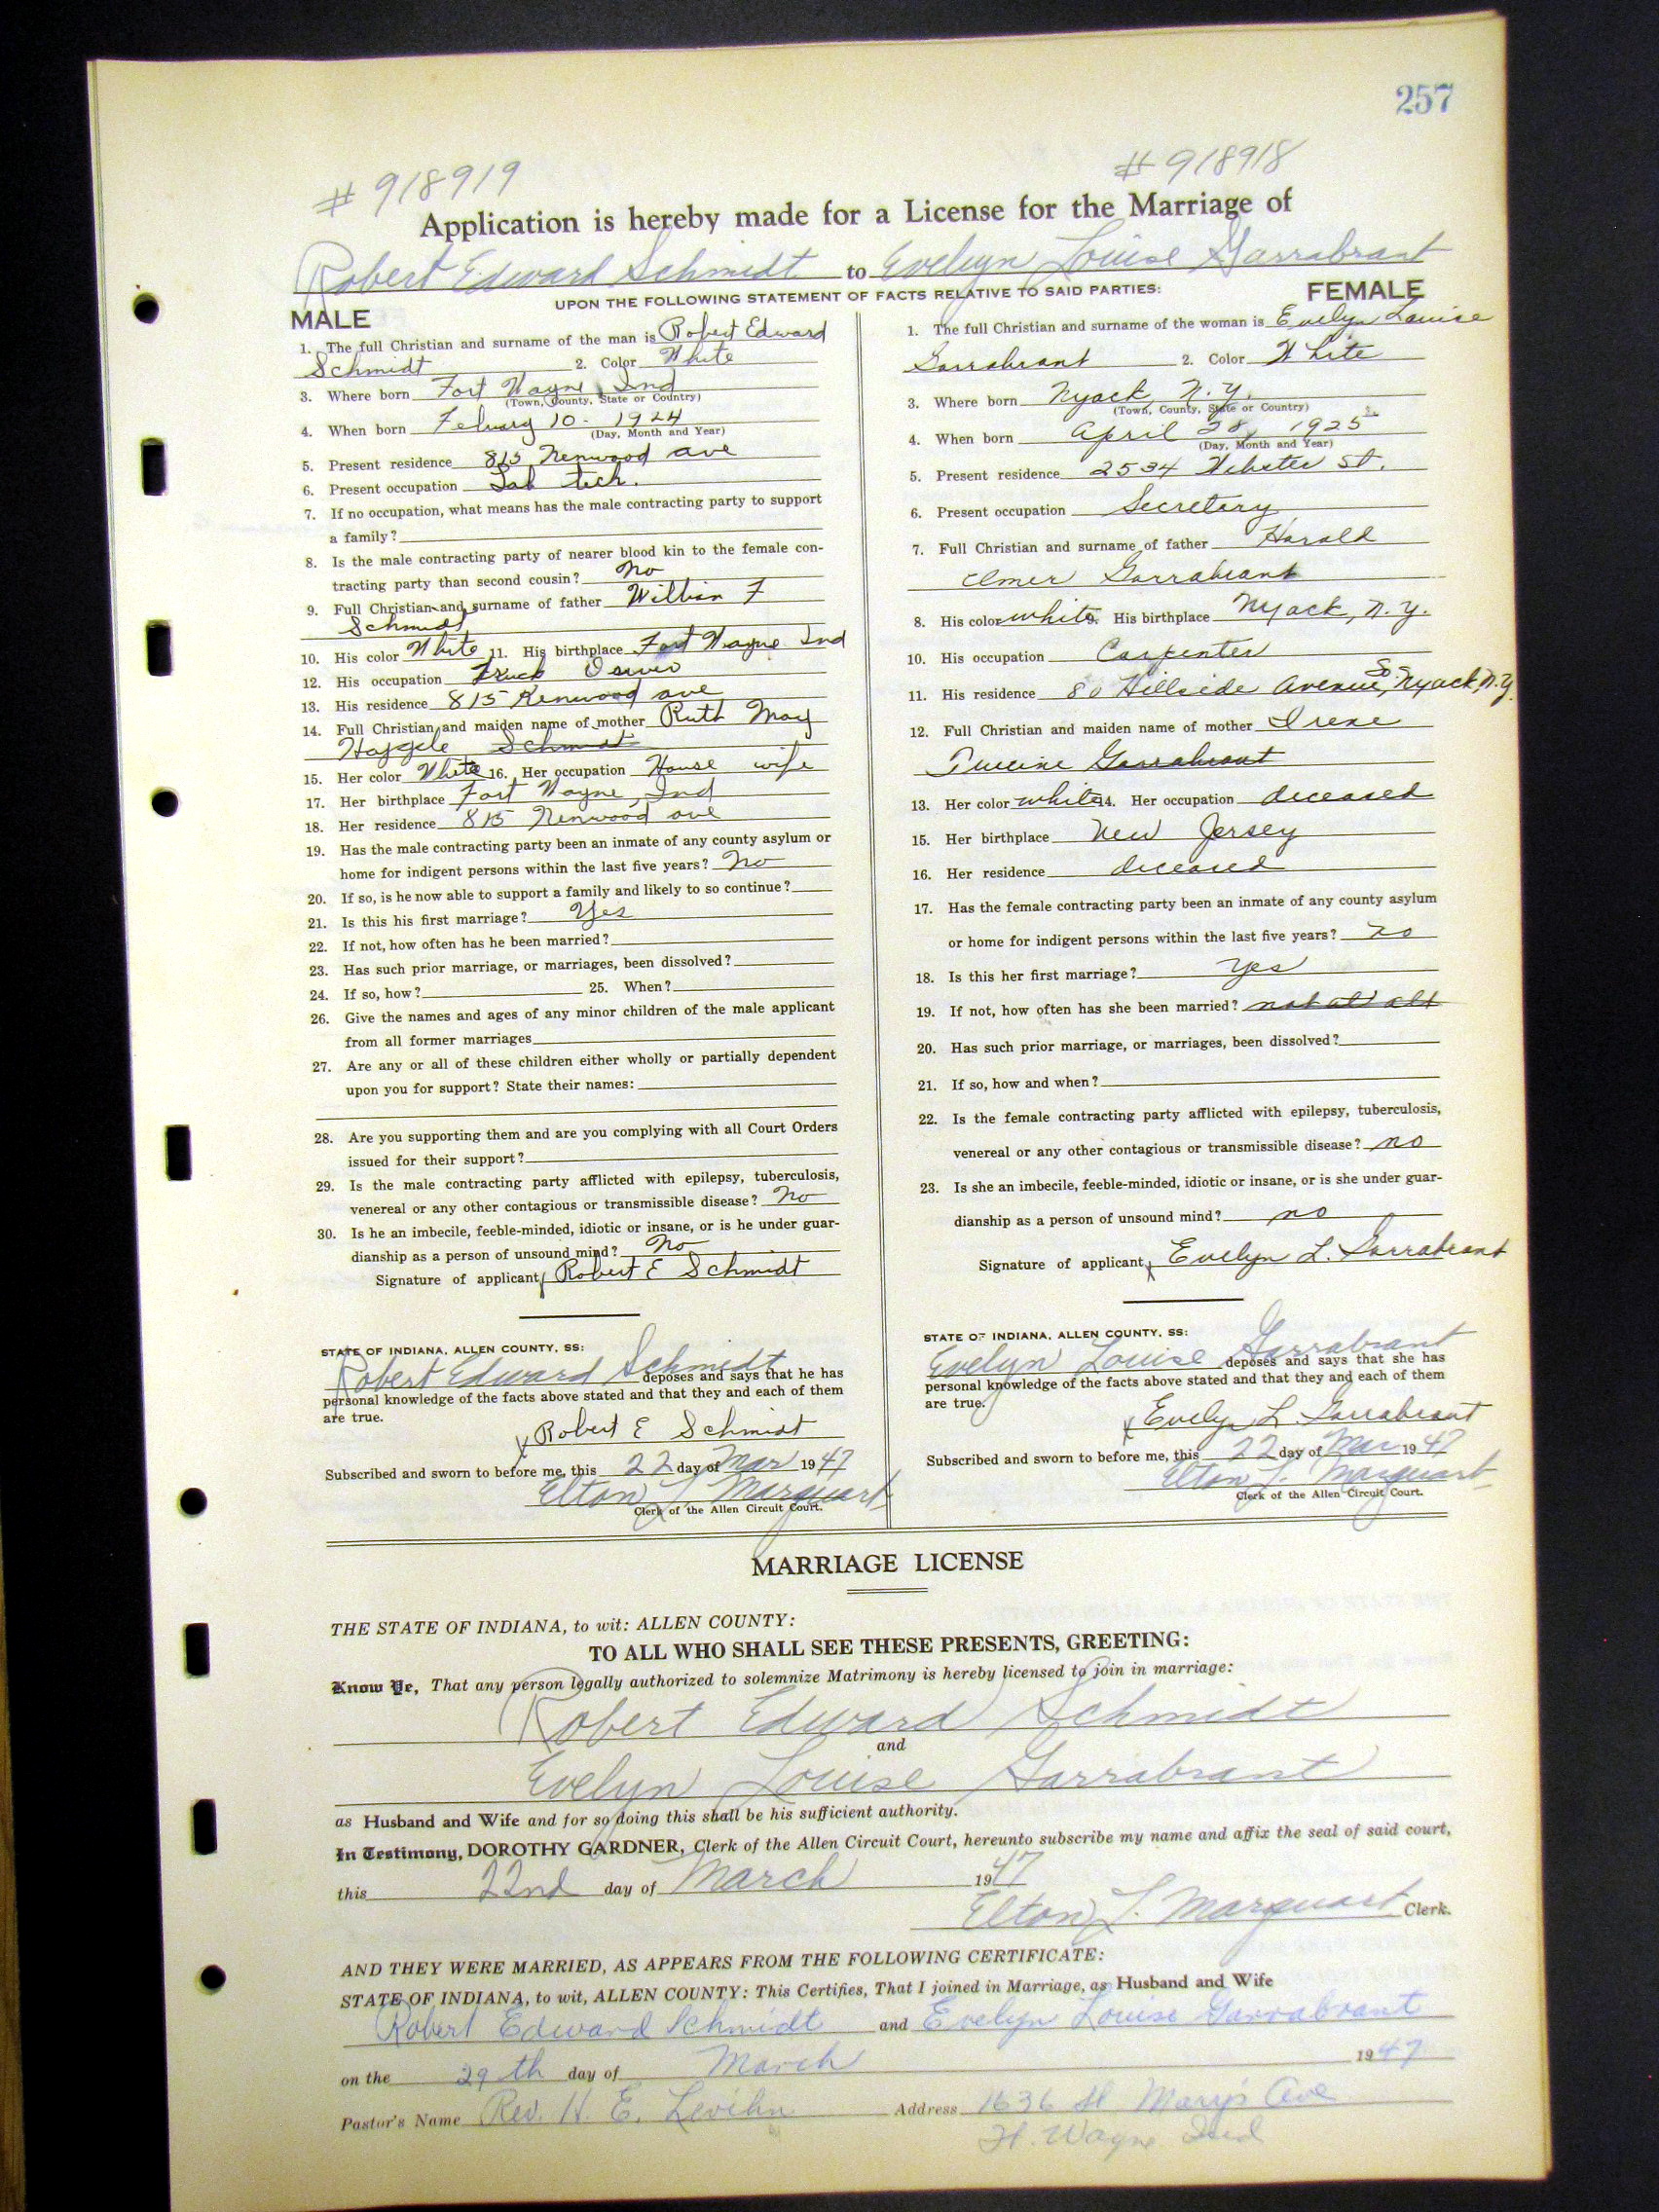 257
# 918919
# 918918
Application is hereby made for a License for the Marriage of
Robert Edward Schmidt to Evelyn Louise Garrabrant
UPON THE FOLLOWING STATEMENT OF FACTS RELATIVE TO SAID PARTIES:
MALE
1. The full Christian and surname of the man is Robert Edward
Schmidt 2. Color White
3. Where born Fort Wayne, Ind
(Town, County, State or Country)
4. When born Febuary 10 - 1924
(Day, Month and Year)
5. Present residence 815 Kenwood ave
6. Present occupation Lab tech.
7. If no occupation, what means has the male contracting party to support
a family?
8. Is the male contracting party of nearer blood kin to the female con-
tracting party than second cousin? No
9. Full Christian and surname of father William F
Schmidt
10. His color White 11. His birthplace Fort Wayne Ind
12. His occupation Truck Driver
13. His residence 815 Kenwood ave
14. Full Christian and maiden name of mother Ruth May
Schmidt
15. Her color White 16. Her occupation House wife
17. Her birthplace Fort Wayne, Ind
18. Her residence 815 Kenwood ave
19. Has the male contracting party been an inmate of any county asylum or
home for indigent persons within the last five years? No
20. If so, is he now able to support a family and likely to so continue?
21. Is this his first marriage? Yes
22. If not, how often has he been married?
23. Has such prior marriage, or marriages, been dissolved?
24. If so, how? 25. When?
26. Give the names and ages of any minor children of the male applicant
from all former marriages
27. Are any or all of these children either wholly or partially dependent
upon you for support? State their names:
28. Are you supporting them and are you complying with all Court Orders
issued for their support?
29. Is the male contracting party afflicted with epilepsy, tuberculosis,
venereal or any other contagious or transmissible disease? No
30. Is he an imbecile, feeble-minded, idiotic or insane, or is he under guar-
dianship as a person of unsound mind? No
Signature of applicant Robert E Schmidt
STATE OF INDIANA, ALLEN COUNTY, SS:
Robert Edward Schmidt deposes and says that he has
personal knowledge of the facts above stated and that they and each of them
are true.
x Robert E Schmidt
Subscribed and sworn to before me, this 22 day of Mar 1947
Elton L. Marquart
Clerk of the Allen Circuit Court.
FEMALE
1. The full Christian and surname of the woman is Evelyn Louise
Garrabrant 2. Color White
3. Where born Nyack, N.Y.
(Town, County, State or Country)
4. When born April 28, 1925
(Day, Month and Year)
5. Present residence 2534 Webster St.
6. Present occupation Secretary
7. Full Christian and surname of father Harold
Elmer Garrabrant
8. His color white 9. His birthplace Nyack, N.Y.
10. His occupation Carpenter
11. His residence 80 Hillside Avenue, So. Nyack, N.Y.
12. Full Christian and maiden name of mother Irene
Garrabrant
13. Her color white 14. Her occupation deceased
15. Her birthplace New Jersey
16. Her residence deceased
17. Has the female contracting party been an inmate of any county asylum
or home for indigent persons within the last five years? No
18. Is this her first marriage? yes
19. If not, how often has she been married? not at all
20. Has such prior marriage, or marriages, been dissolved?
21. If so, how and when?
22. Is the female contracting party afflicted with epilepsy, tuberculosis,
venereal or any other contagious or transmissible disease? no
23. Is she an imbecile, feeble-minded, idiotic or insane, or is she under guar-
dianship as a person of unsound mind? no
Signature of applicant x Evelyn L. Garrabrant
STATE OF INDIANA, ALLEN COUNTY, SS:
Evelyn Louise Garrabrant deposes and says that she has
personal knowledge of the facts above stated and that they and each of them
are true.
x Evelyn L. Garrabrant
Subscribed and sworn to before me, this 22 day of Mar 1947
Elton L. Marquart
Clerk of the Allen Circuit Court.
MARRIAGE LICENSE
THE STATE OF INDIANA, to wit: ALLEN COUNTY:
TO ALL WHO SHALL SEE THESE PRESENTS, GREETING:
Know Ye, That any person legally authorized to solemnize Matrimony is hereby licensed to join in marriage:
Robert Edward Schmidt
and
Evelyn Louise Garrabrant
as Husband and Wife and for so doing this shall be his sufficient authority.
In Testimony, DOROTHY GARDNER, Clerk of the Allen Circuit Court, hereunto subscribe my name and affix the seal of said court,
this 22nd day of March 1947
Elton L. Marquart Clerk.
AND THEY WERE MARRIED, AS APPEARS FROM THE FOLLOWING CERTIFICATE:
STATE OF INDIANA, to wit, ALLEN COUNTY: This Certifies, That I joined in Marriage, as Husband and Wife
Robert Edward Schmidt and Evelyn Louise Garrabrant
on the 29th day of March 1947
Pastor's Name Rev. H. E. Levihn Address 1636 St Mary's Ave
Ft. Wayne Ind